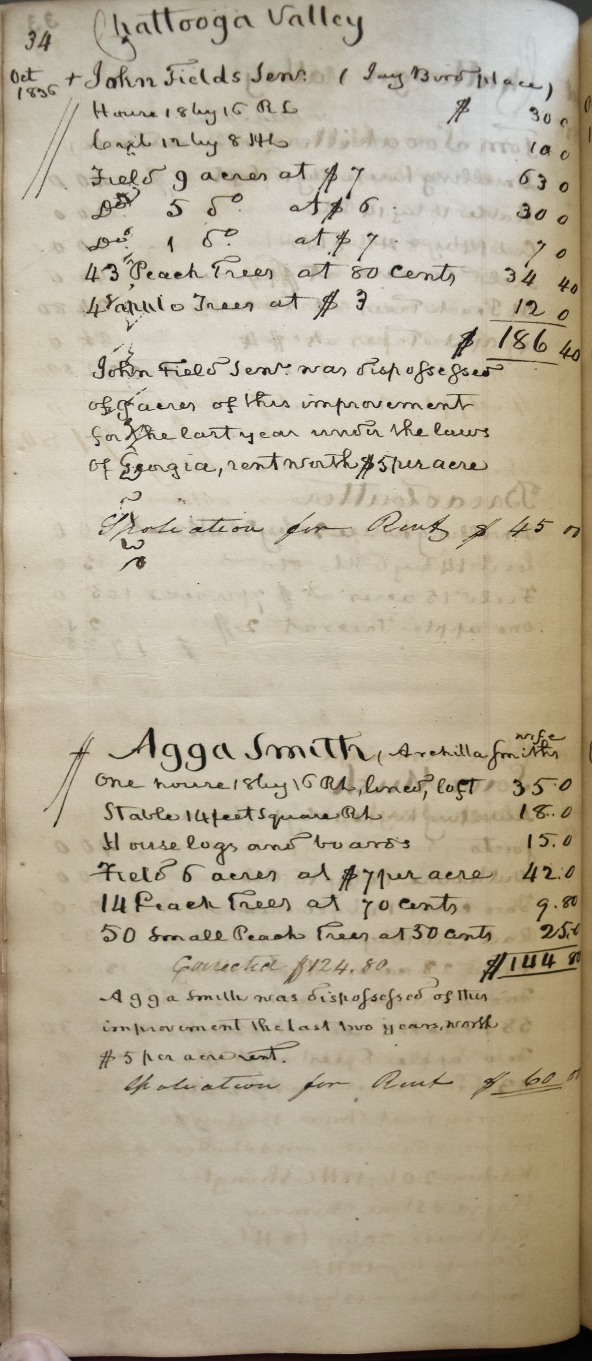 34 Chattooga Valley
Oct 1836 + John Fields Senr. (Jay Bird place)
House 18 by 16 RL $ 30 0
12 by 8 10 0
Field 9 acres at $7 63 0
Do 5 do at $6 30 0
Do 1 do at $7 7 0
43 Peach Trees at 80 cents 34 40
4 apple Trees at $3 12 0
$ 186 40
John Field Senr. was dispossessed
of 9 acres of this improvement
for the last year under the laws
of Georgia, rent worth $5 per acre
Spoliation for Rent $ 45 00
Agga Smith, Archilla Smiths wife
One house 18 by 16 RL, lined, loft 35 0
Stable 14 feet square RL 18. 0
House logs and boards 15. 0
Field 6 acres at $7 per acre 42. 0
14 Peach Trees at 70 cents 9. 80
50 Small Peach Trees at 50 cents 25. 0
Corrected $124.80 $144 80
Agga Smith was dispossessed of this
improvement the last two years, worth
$5 per acre rent.
Spoliation for Rent $ 60 00